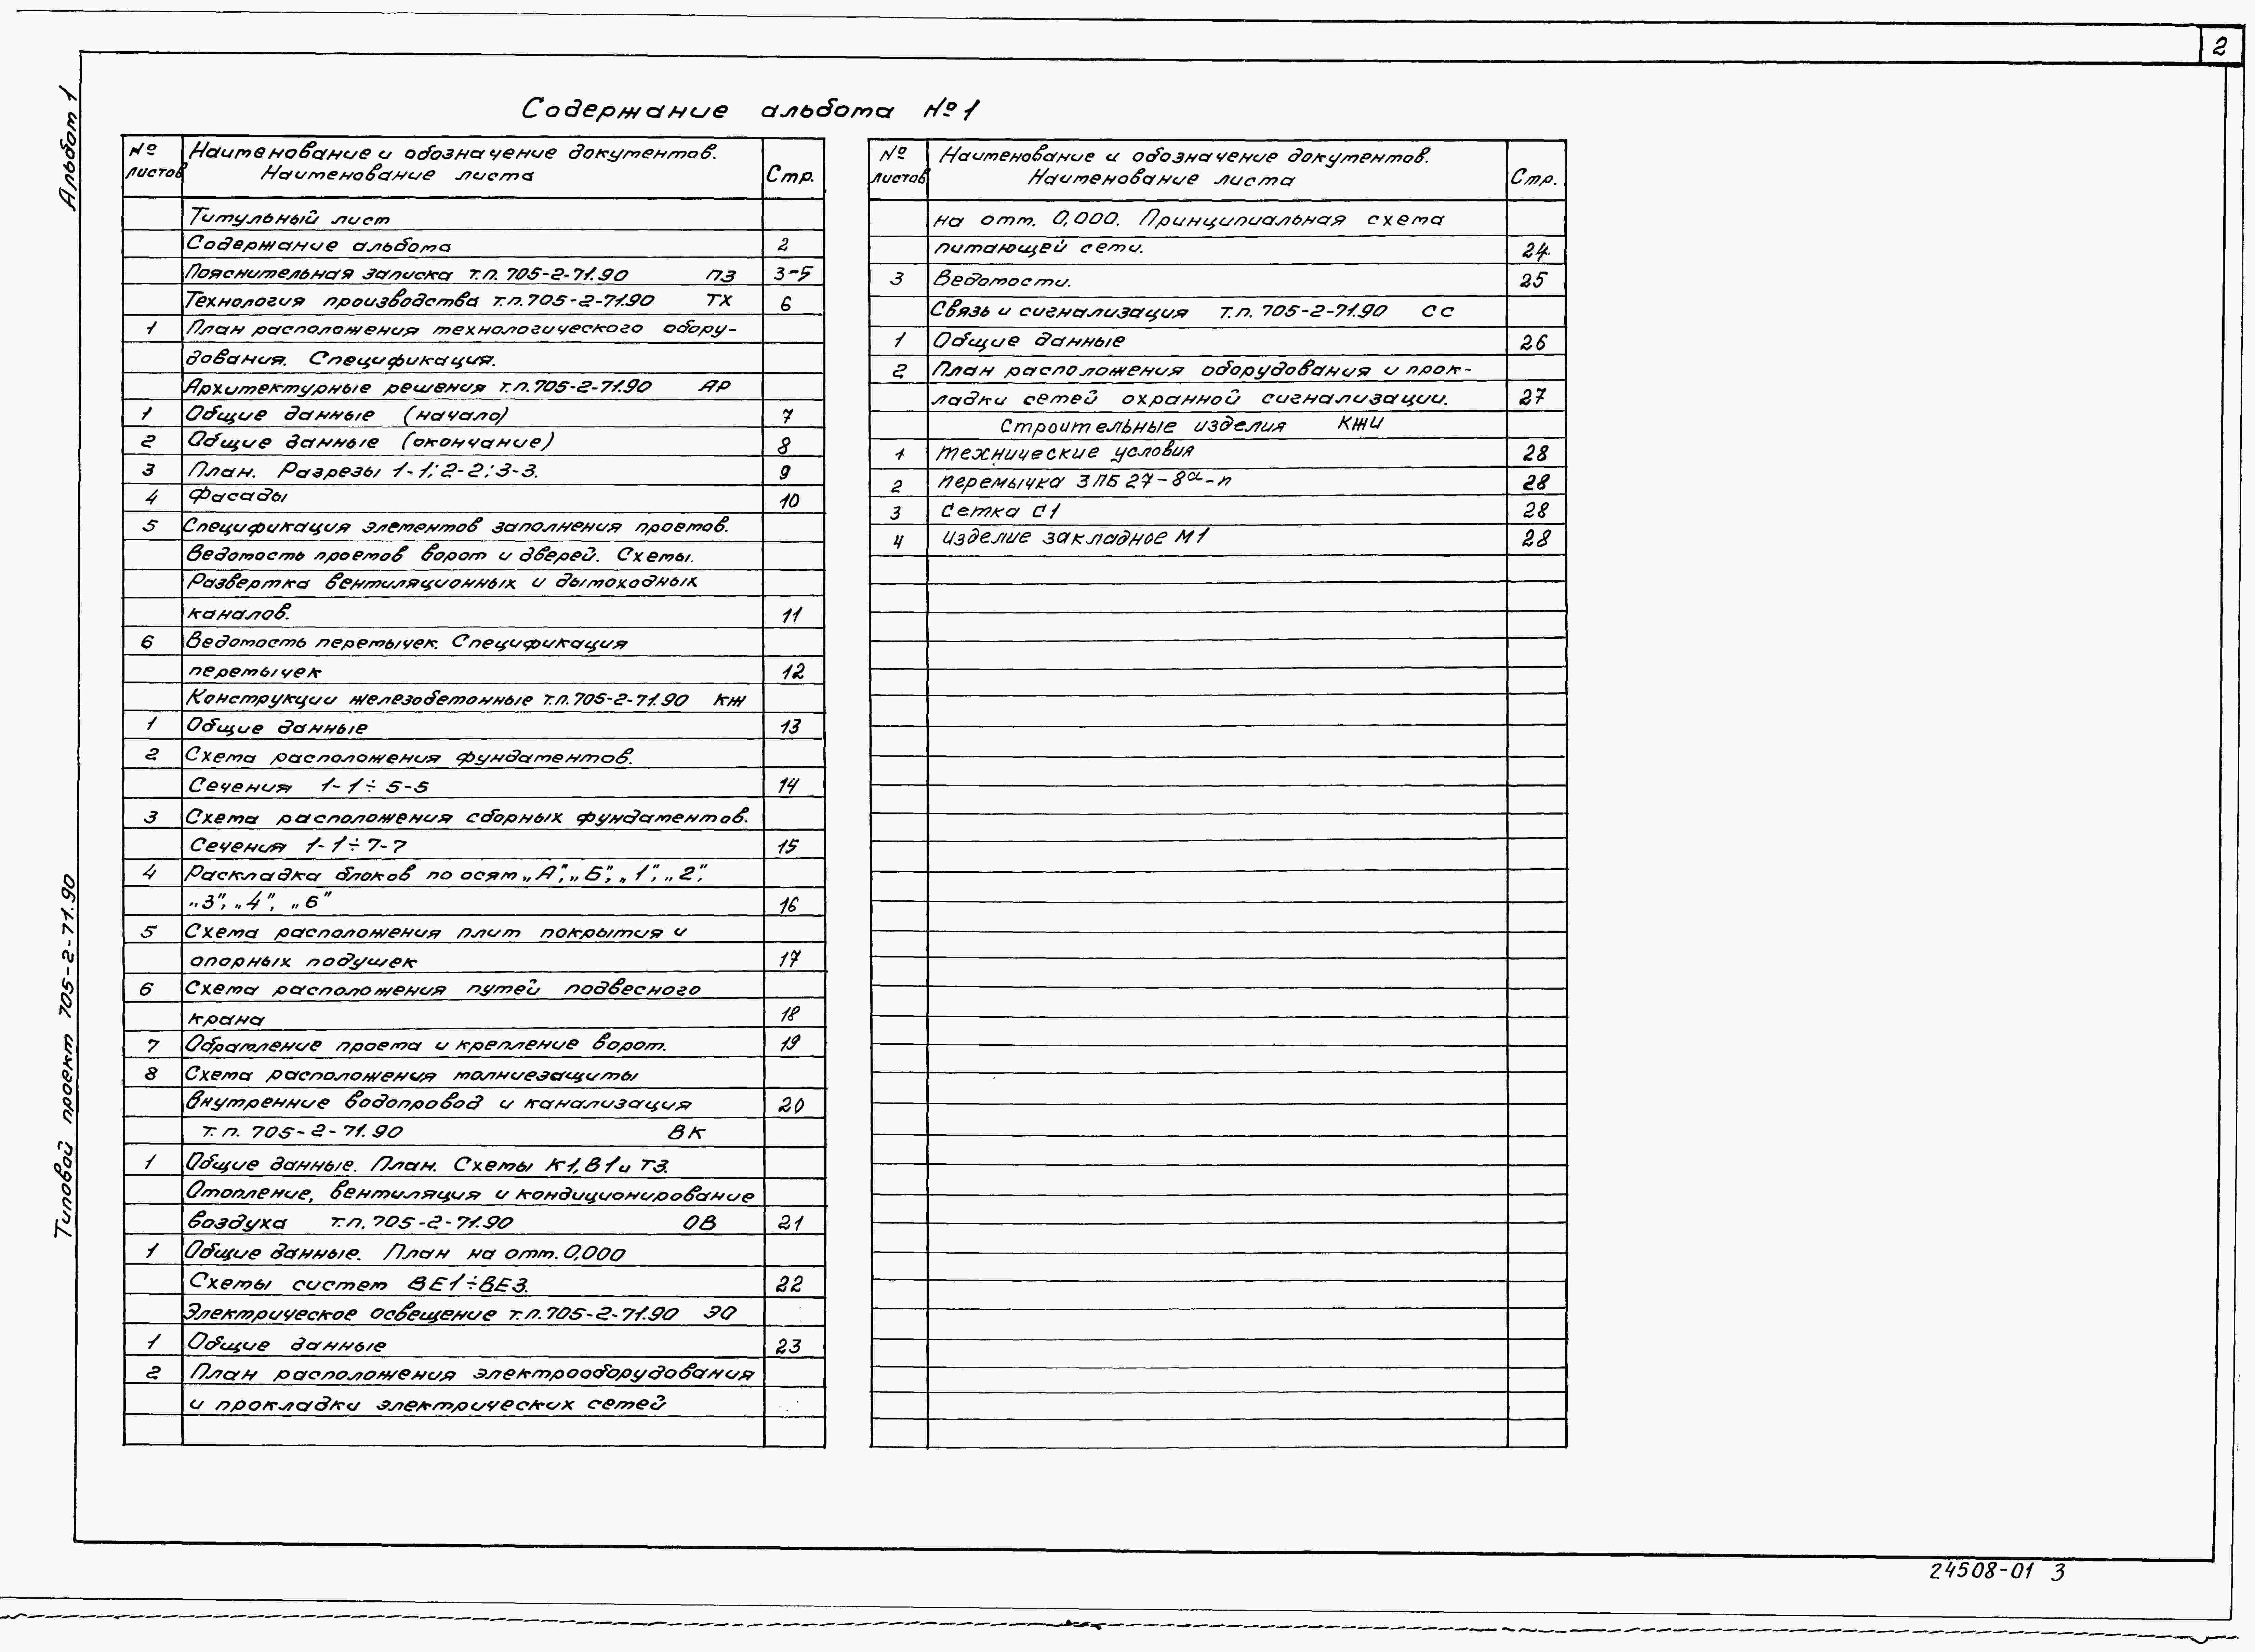 2
Альбом 1
Типовой проект 705-2-71.90
Содержание альбома №1
№ листов
Наименование и обозначение документов.
Наименование листа
Стр.
Титульный лист
Содержание альбома 2
Пояснительная записка т.п. 705-2-71.90 ПЗ 3-5
Технология производства т.п. 705-2-71.90 ТХ 6
1 План расположения технологического обору-
дования. Спецификация.
Архитектурные решения т.п. 705-2-71.90 АР
1 Общие данные (начало) 7
2 Общие данные (окончание) 8
3 План. Разрезы 1-1; 2-2; 3-3. 9
4 Фасады 10
5 Спецификация элементов заполнения проемов.
Ведомость проемов ворот и дверей. Схемы.
Развертка вентиляционных и дымоходных
каналов. 11
6 Ведомость перемычек. Спецификация
перемычек 12
Конструкции железобетонные т.п. 705-2-71.90 КЖ
1 Общие данные 13
2 Схема расположения фундаментов.
Сечения 1-1÷5-5 14
3 Схема расположения сборных фундаментов.
Сечения 1-1÷7-7 15
4 Раскладка блоков по осям „А”, „Б”, „1”, „2”,
„3”, „4”, „6” 16
5 Схема расположения плит покрытия и
опорных подушек 17
6 Схема расположения путей подвесного
крана 18
7 Обрамление проема и крепление ворот. 19
8 Схема расположения молниезащиты
Внутренние водопровод и канализация 20
т.п. 705-2-71.90 ВК
1 Общие данные. План. Схемы К1, В1 и Т3.
Отопление, вентиляция и кондиционирование
воздуха т.п. 705-2-71.90 ОВ 21
1 Общие данные. План на отм. 0,000
Схемы систем ВЕ1÷ВЕ3. 22
Электрическое освещение т.п. 705-2-71.90 ЭО
1 Общие данные 23
2 План расположения электрооборудования
и прокладки электрических сетей
№ листов
Наименование и обозначение документов.
Наименование листа
Стр.
на отм. 0,000. Принципиальная схема
питающей сети. 24
3 Ведомости. 25
Связь и сигнализация т.п. 705-2-71.90 СС
1 Общие данные 26
2 План расположения оборудования и прок-
ладки сетей охранной сигнализации. 27
Строительные изделия КЖИ
1 Технические условия 28
2 Перемычка 3ПБ 27-8а-п 28
3 Сетка С1 28
4 Изделие закладное М1 28
24508-01 3